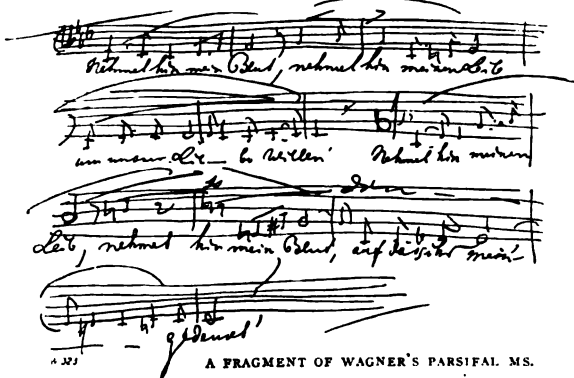 Nehmet hin mein Blut, nehmet hin meinen Leib
um unsrer Lie- be Willen! Nehmet hin meinen
Leib, nehmet hin mein Blut, auf dass ihr mein'
gedenket!
A FRAGMENT OF WAGNER'S PARSIFAL MS.